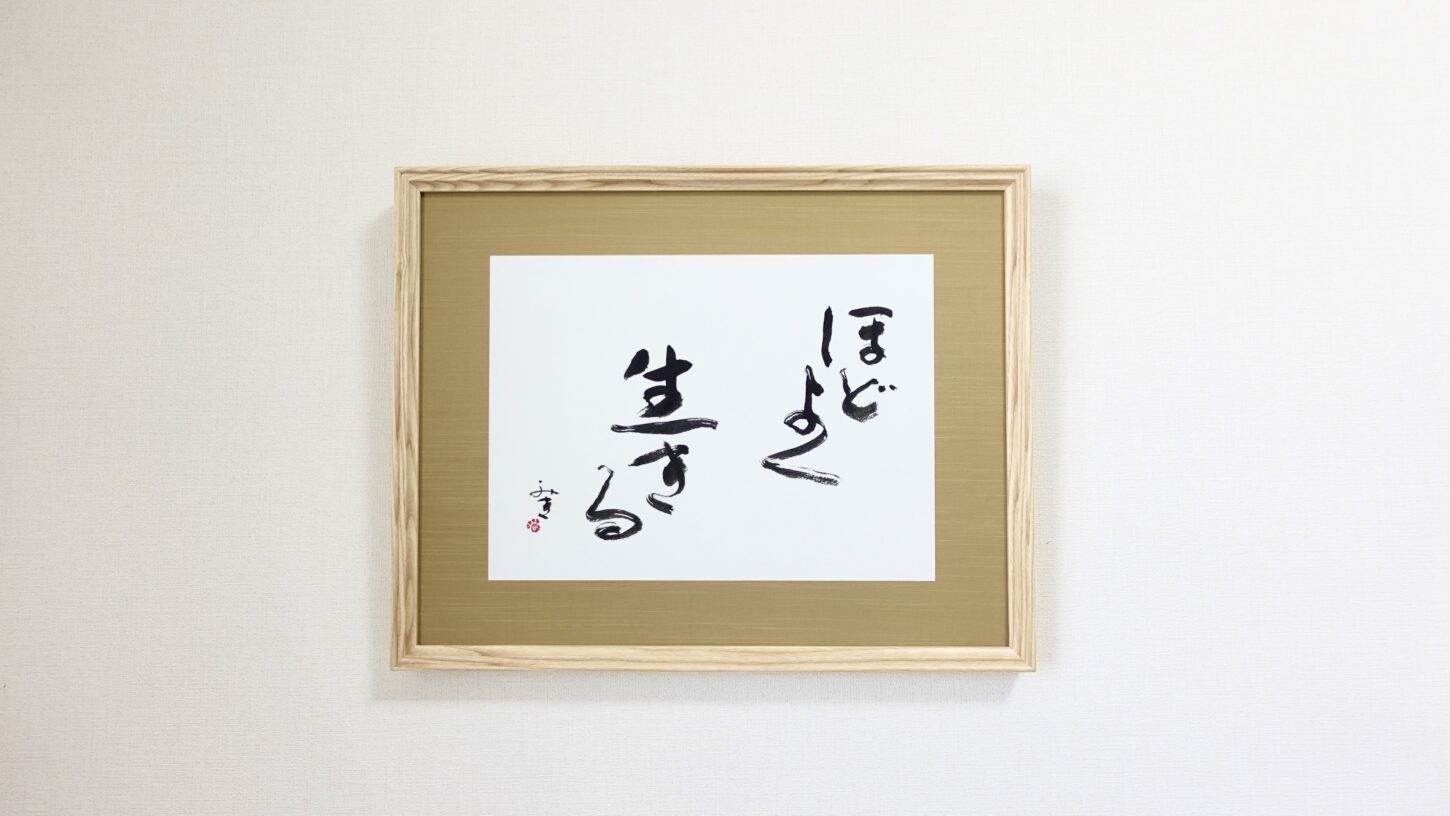 ほどよく
生きる
みき